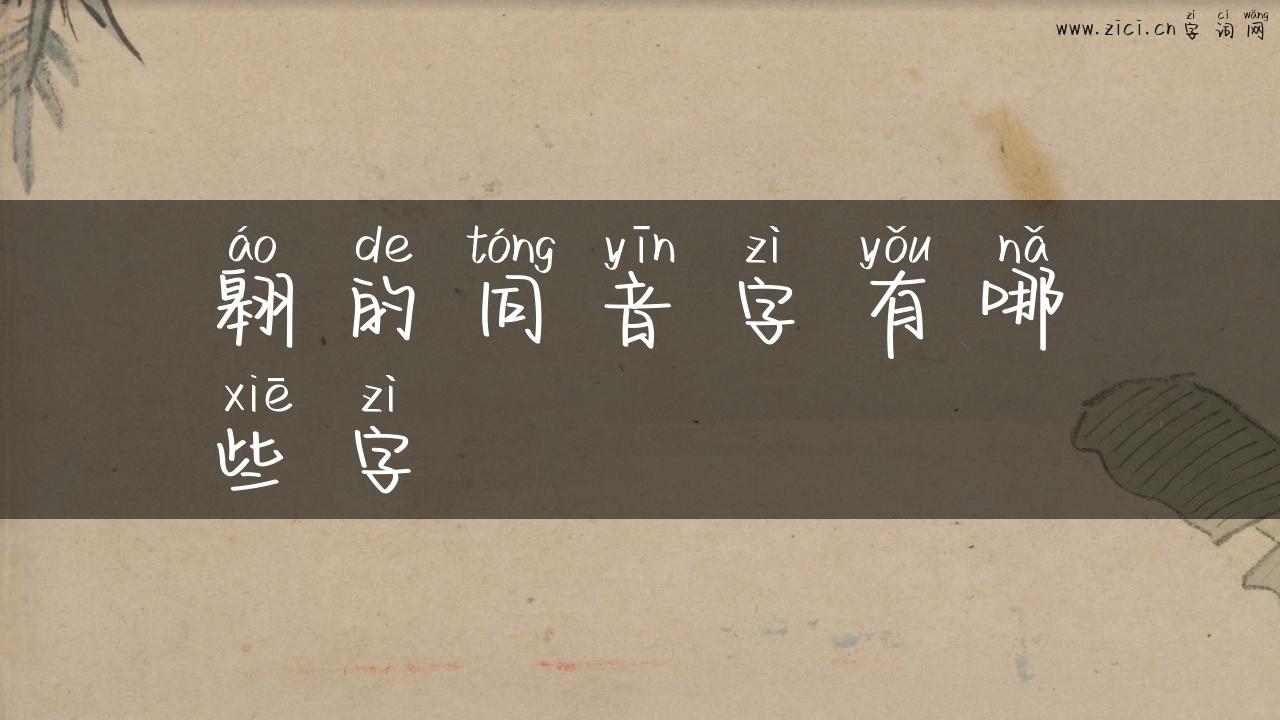 zì cí wǎng
www.zici.cn 字词网
áo de tóng yīn zì yǒu nǎ
翱的同音字有哪
xiē zì
些字